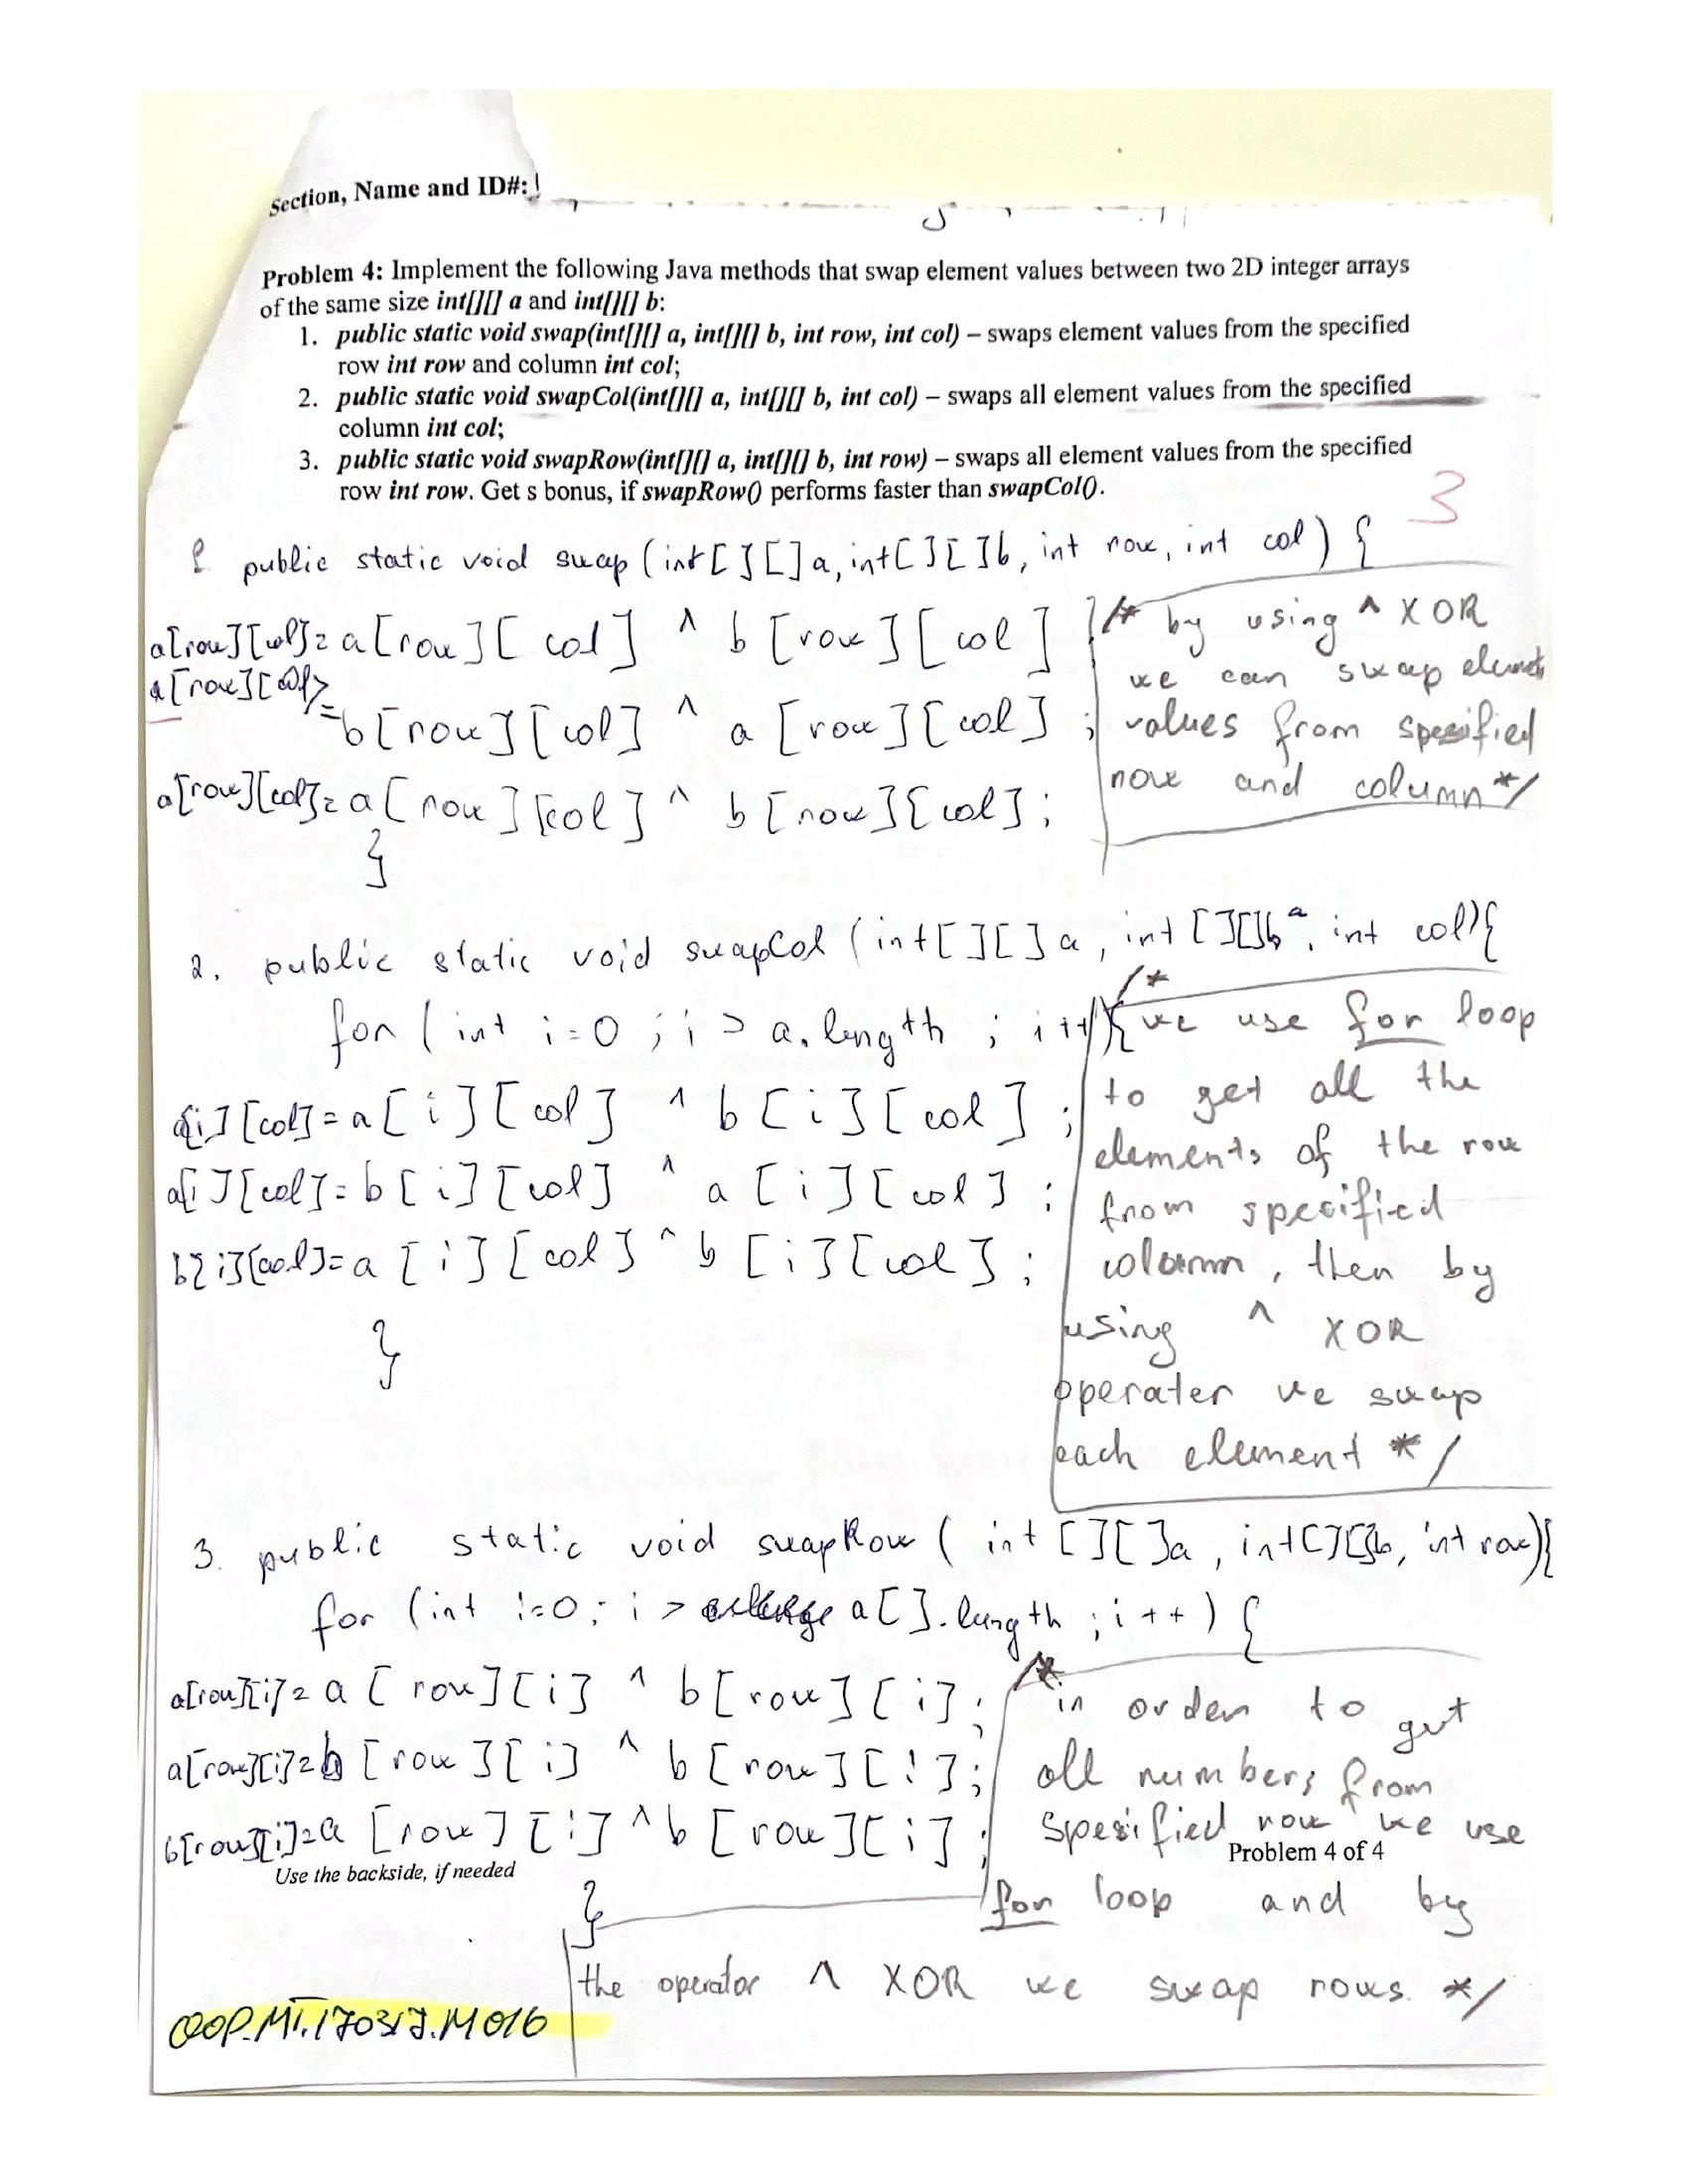 Section, Name and ID#:
Problem 4: Implement the following Java methods that swap element values between two 2D integer arrays
of the same size int[][] a and int[][] b:
1. public static void swap(int[][] a, int[][] b, int row, int col) – swaps element values from the specified
row int row and column int col;
2. public static void swapCol(int[][] a, int[][] b, int col) – swaps all element values from the specified
column int col;
3. public static void swapRow(int[][] a, int[][] b, int row) – swaps all element values from the specified
row int row. Get s bonus, if swapRow() performs faster than swapCol().
3
public static void swap (int[][]a, int[][]b, int row, int col) {
a[row][col]= a[row][col] ^ b[row][col]
a[row][col]
= b[row][col] ^ a[row][col];
a[row][col]= a[row][col] ^ b[row][col];
}
/* by using ^ XOR
we can swap elements
values from spesified
row and column */
2. public static void swapCol (int[][]a, int[][]b, int col){
for (int i=0; i > a.length; i++){
a[i][col]= a[i][col] ^ b[i][col];
a[i][col]= b[i][col] ^ a[i][col];
b[i][col]= a[i][col] ^ b[i][col];
}
/*
we use for loop
to get all the
elements of the row
from specified
column, then by
using ^ XOR
operater we swap
each element */
3. public static void swapRow (int[][]a, int[][]b, int row){
for (int i=0; i > a[].length; i++) {
a[row][i]= a[row][i] ^ b[row][i];
a[row][i]= b[row][i] ^ b[row][i];
b[row][i]= a[row][i] ^ b[row][i];
}
/* in order to get
all numbers from
spesified row we use
for loop and by
the operator ^ XOR we swap rows. */
Use the backside, if needed
Problem 4 of 4
OOP.MT.170317.M016